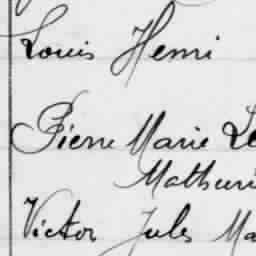 Louis Henri
Pierre Marie Le
Mathuri
Victor Jules Ma